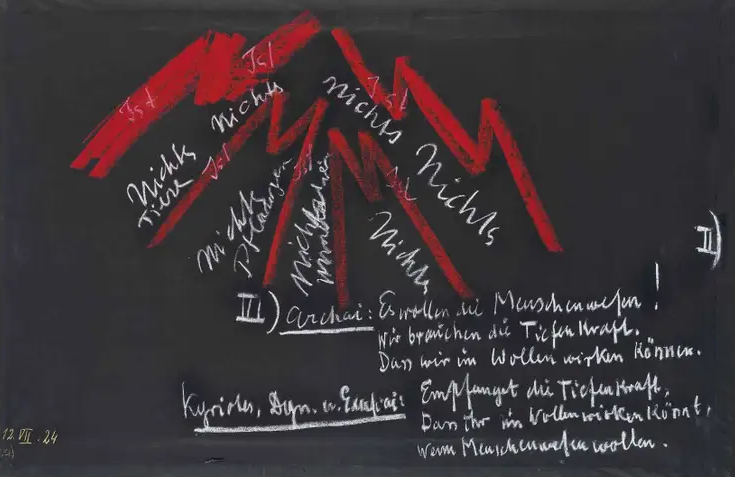 Ist
Ist
Ist
Nichts
nichts
Nichts
Tiere
Ist
Nichts
Nichts
Pflanzen
Nichts
Mineralien
Ist
Nichts
II)
III) Archai: Es wollen die Menschenwesen!
Wir brauchen die Tiefenkraft.
Dass wir im Wollen wirken können.
Kyriotet, Dyn. u. Exusiai: Empfanget die Tiefenkraft,
Dass ihr im Wollen wirken könnt,
wenn Menschenwesen wollen.
12. VII. 24